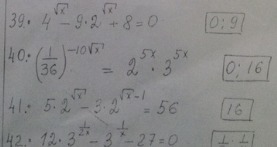 39. 4^√x - 9·2^√x + 8 = 0 0; 9
40. (1/36)^-10√x = 2^5x · 3^5x 0; 16
41. 5·2^√x - 3·2^√x-1 = 56 16
42. 12·3^1/2x - 3^1/x - 27 = 0